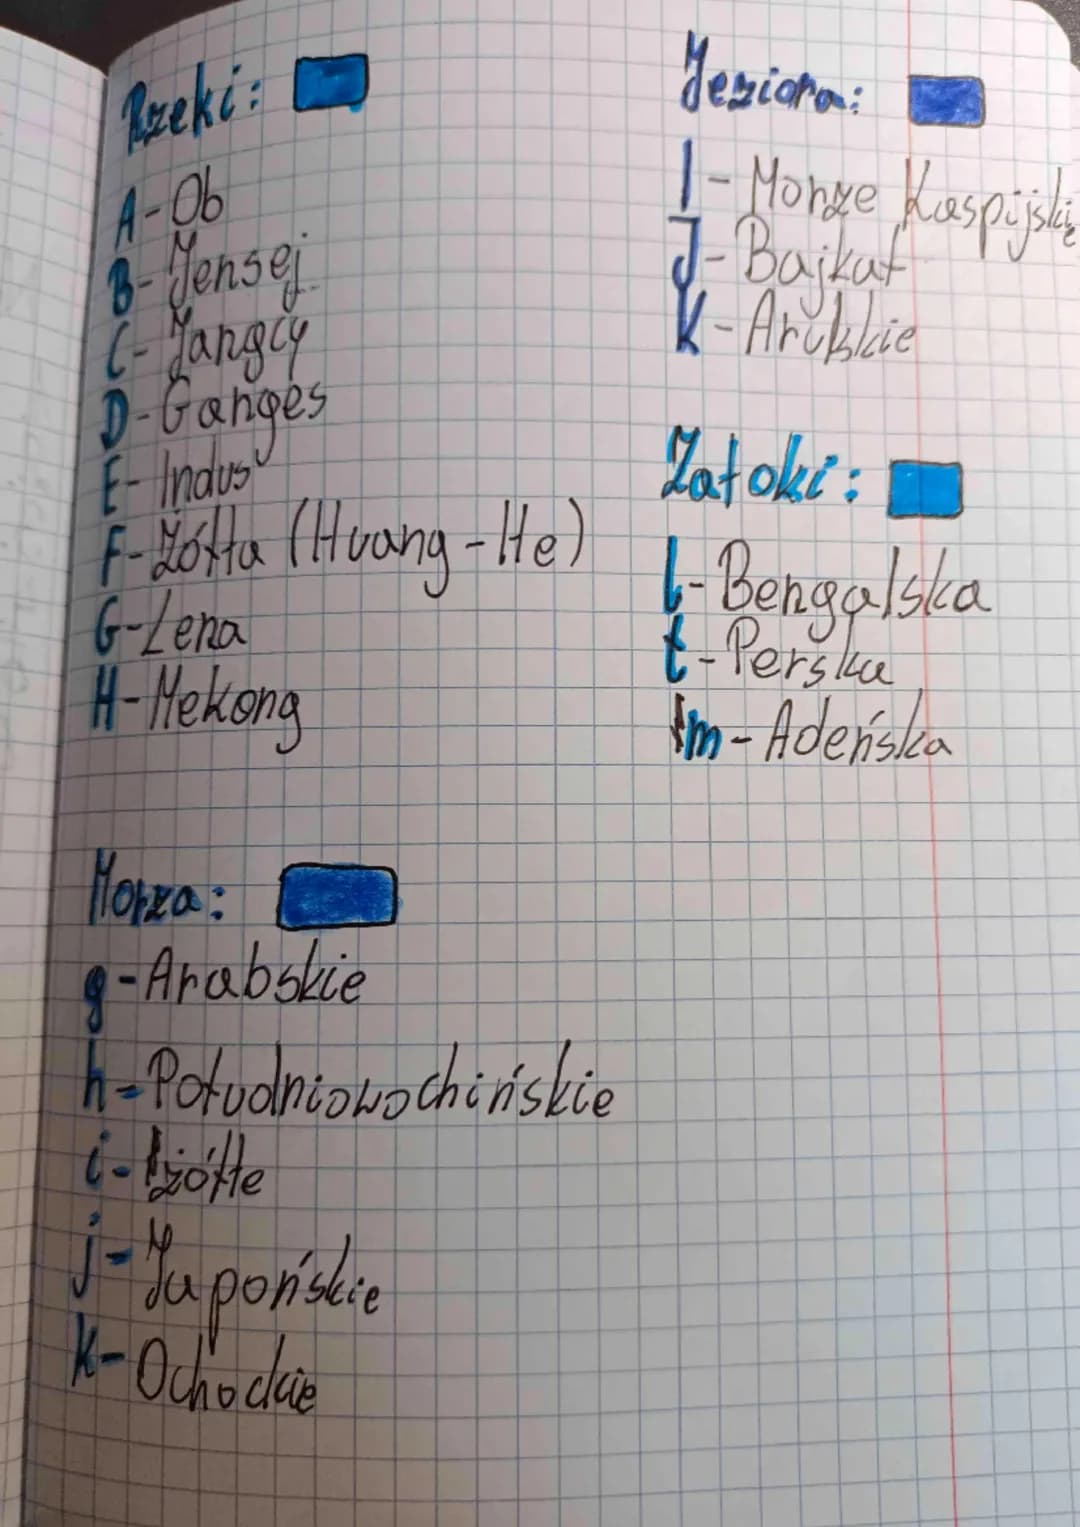 Rzeki:
A - Ob
B - Jensej
C - Jangcy
D - Ganges
E - Indus
F - Żółta (Huang-He)
G - Lena
H - Mekong
Morza:
g - Arabskie
h - Południowochińskie
i - żółte
j - Japońskie
k - Ochockie
Jeziora:
I - Morze Kaspijskie
J - Bajkał
K - Aralskie
Zatoki:
l - Bengalska
ł - Perska
m - Adeńska